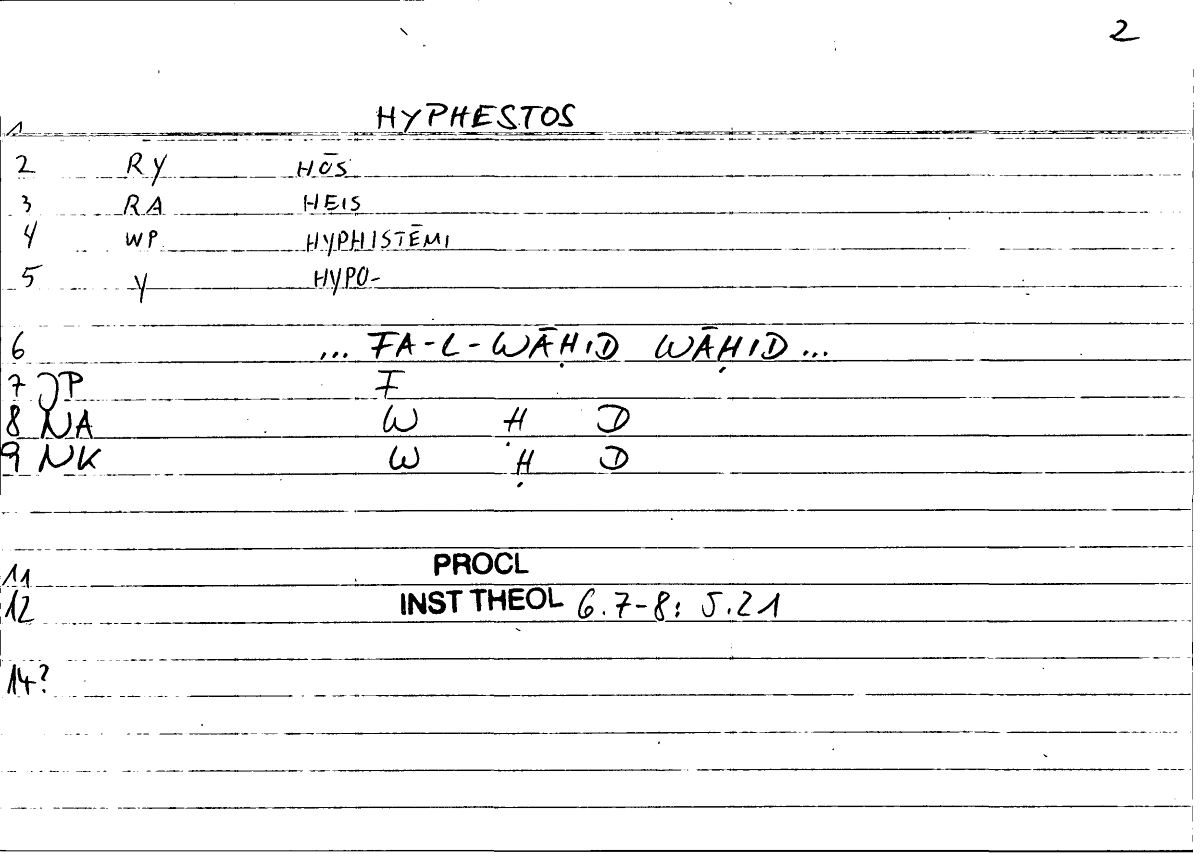 2
1 HYPHESTOS
2 RY HŌS
3 RA HEIS
4 WP HYPHISTĒMI
5 Y HYPO-
6 ... FA-L-WĀḤID WĀḤID ...
7 JP F
8 NA W Ḥ D
9 NK W Ḥ D
11 PROCL
12 INST THEOL 6.7-8: 5.21
14?